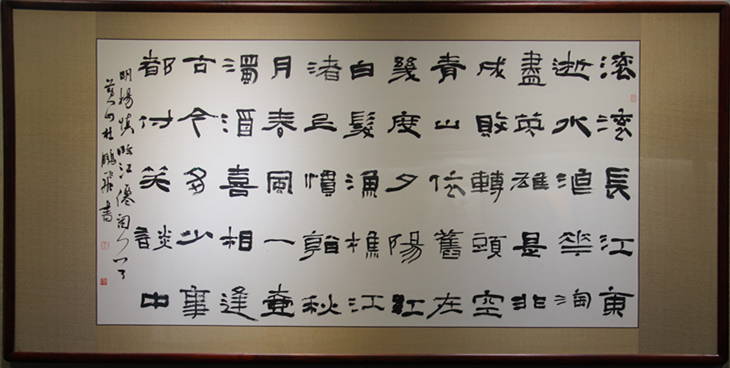 滾滾長江東
逝水浪花淘
盡英雄是非
成敗轉頭空
青山依舊在
幾度夕陽紅
白髮漁樵江
渚上慣看秋
月春風一壺
濁酒喜相逢
古今多少事
都付笑談中
明楊慎臨江僊詞
杜鵬飛書